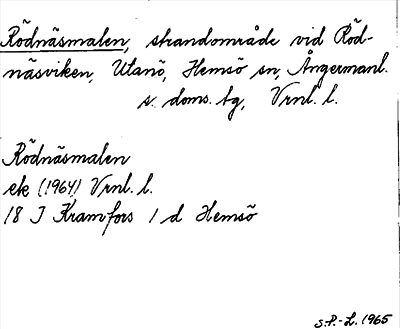 Rödnäsmalen, strandområde vid Röd-
näsviken, Utanö, Hemsö sn, Ångermanl.
s. doms. tg, Vrnl. l.
Rödnäsmalen
ek (1964) Vrnl. l.
18 I Kramfors 1 d Hemsö
S.P.-L. 1965